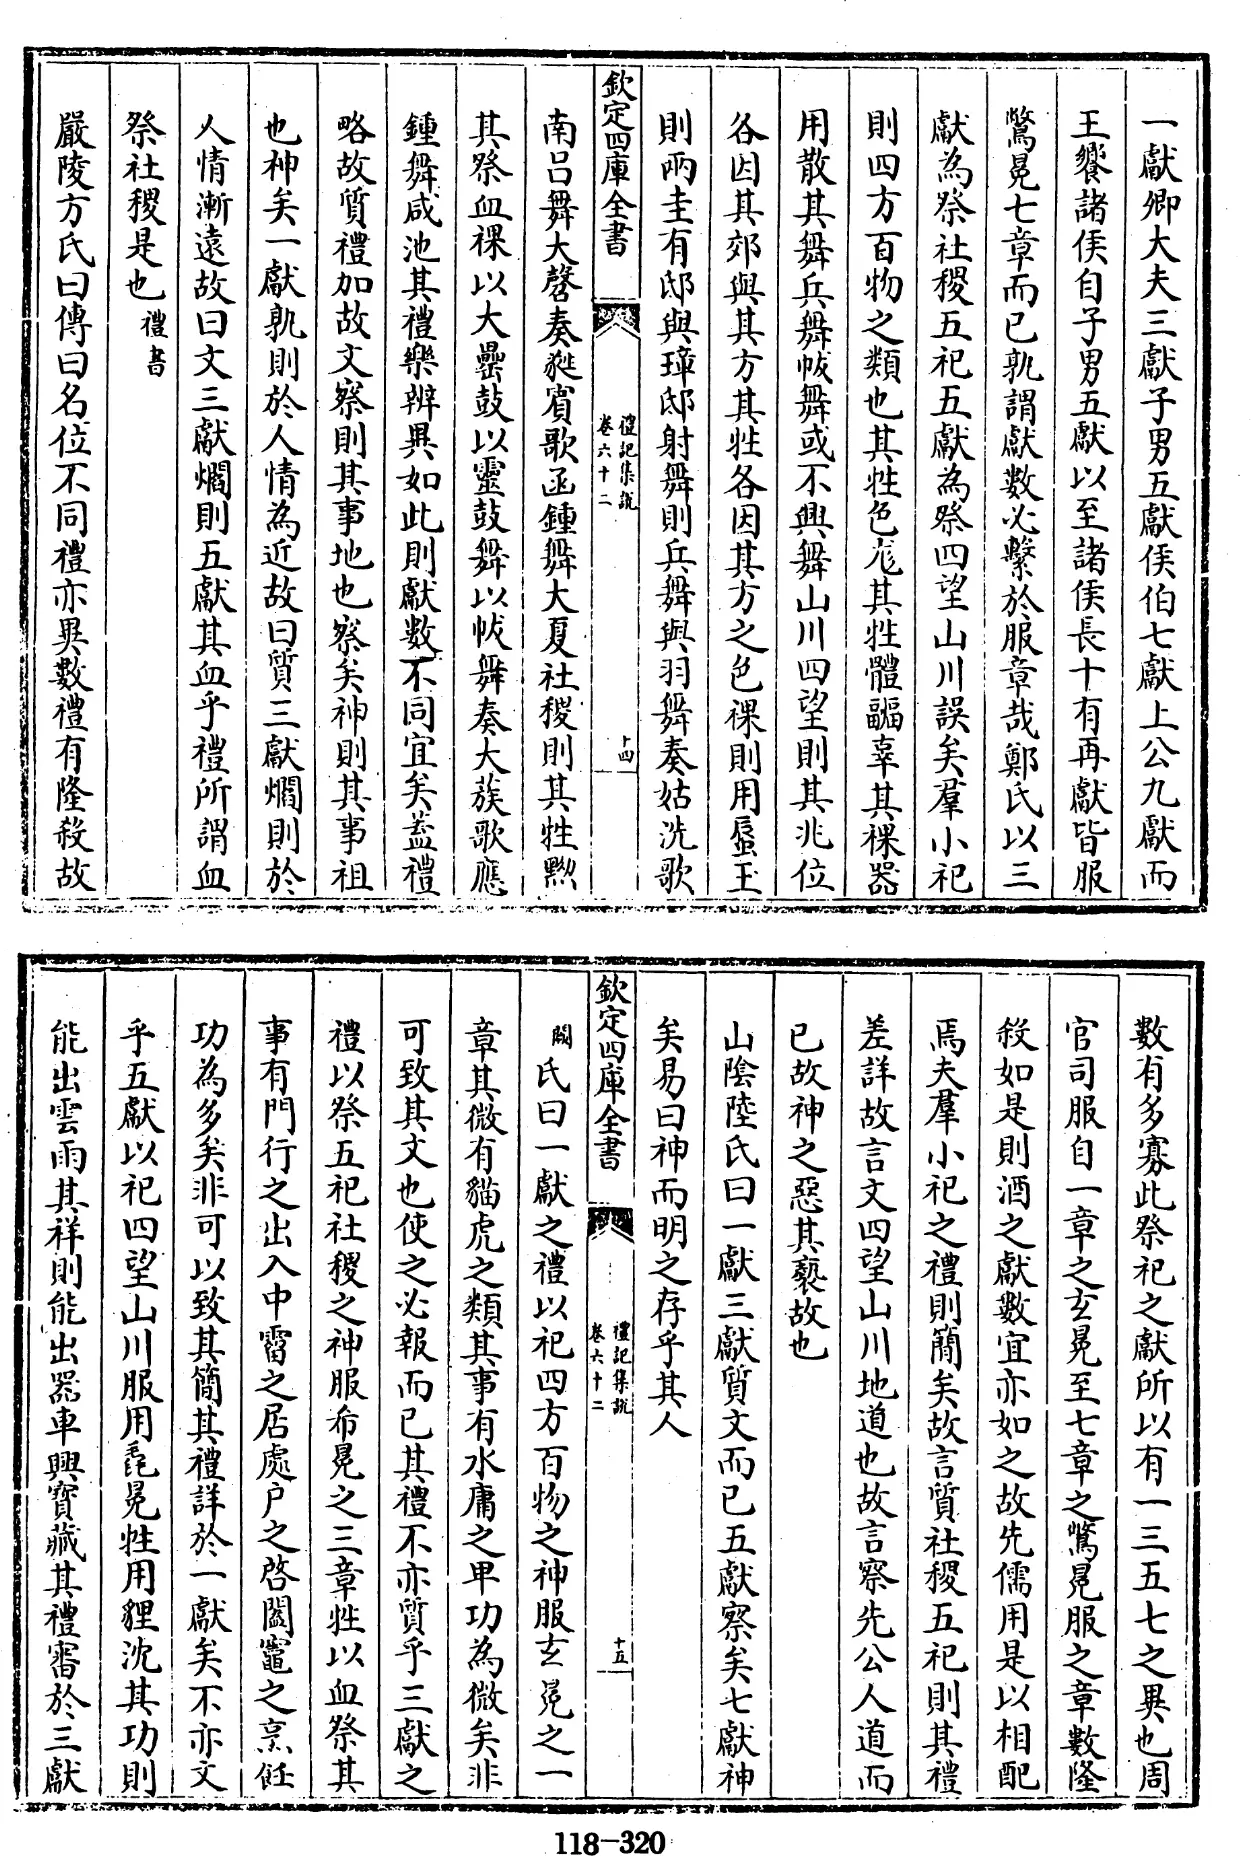 一獻卿大夫三獻子男五獻侯伯七獻上公九獻而
王饗諸侯自子男五獻以至諸侯長十有再獻皆服
鷩冕七章而已孰謂獻數必繫於服章哉鄭氏以三
獻為祭社稷五祀五獻為祭四望山川誤矣羣小祀
則四方百物之類也其牲色尨其牲體疈辜其祼器
用散其舞兵舞帗舞或不興舞山川四望則其兆位
各因其郊與其方其牲各因其方之色祼則用蜃玉
則兩圭有邸與璋邸射舞則兵舞與羽舞奏姑洗歌
欽定四庫全書
禮記集說
卷六十二
十四
南呂舞大磬奏蕤賓歌函鍾舞大夏社稷則其牲黝
其祭血祼以大罍鼓以靈鼓舞以帗舞奏大蔟歌應
鍾舞咸池其禮樂辨異如此則獻數不同宜矣蓋禮
略故質禮加故文察則其事地也察矣神則其事祖
也神矣一獻孰則於人情為近故曰質三獻爓則於
人情漸遠故曰文三獻爓則五獻其血乎禮所謂血
祭社稷是也禮書
嚴陵方氏曰傳曰名位不同禮亦異數禮有隆殺故
數有多寡此祭祀之獻所以有一三五七之異也周
官司服自一章之玄冕至七章之鷩冕服之章數隆
殺如是則酒之獻數宜亦如之故先儒用是以相配
焉夫羣小祀之禮則簡矣故言質社稷五祀則其禮
差詳故言文四望山川地道也故言察先公人道而
已故神之惡其褻故也
山陰陸氏曰一獻三獻質文而已五獻察矣七獻神
矣易曰神而明之存乎其人
欽定四庫全書
禮記集說
卷六十二
十五
闕氏曰一獻之禮以祀四方百物之神服玄冕之一
章其微有貓虎之類其事有水庸之卑功為微矣非
可致其文也使之必報而已其禮不亦質乎三獻之
禮以祭五祀社稷之神服希冕之三章牲以血祭其
事有門行之出入中霤之居處户之啓闔竈之烹飪
功為多矣非可以致其簡其禮詳於一獻矣不亦文
乎五獻以祀四望山川服用毳冕牲用貍沈其功則
能出雲雨其祥則能出器車興寶藏其禮審於三獻
118-320